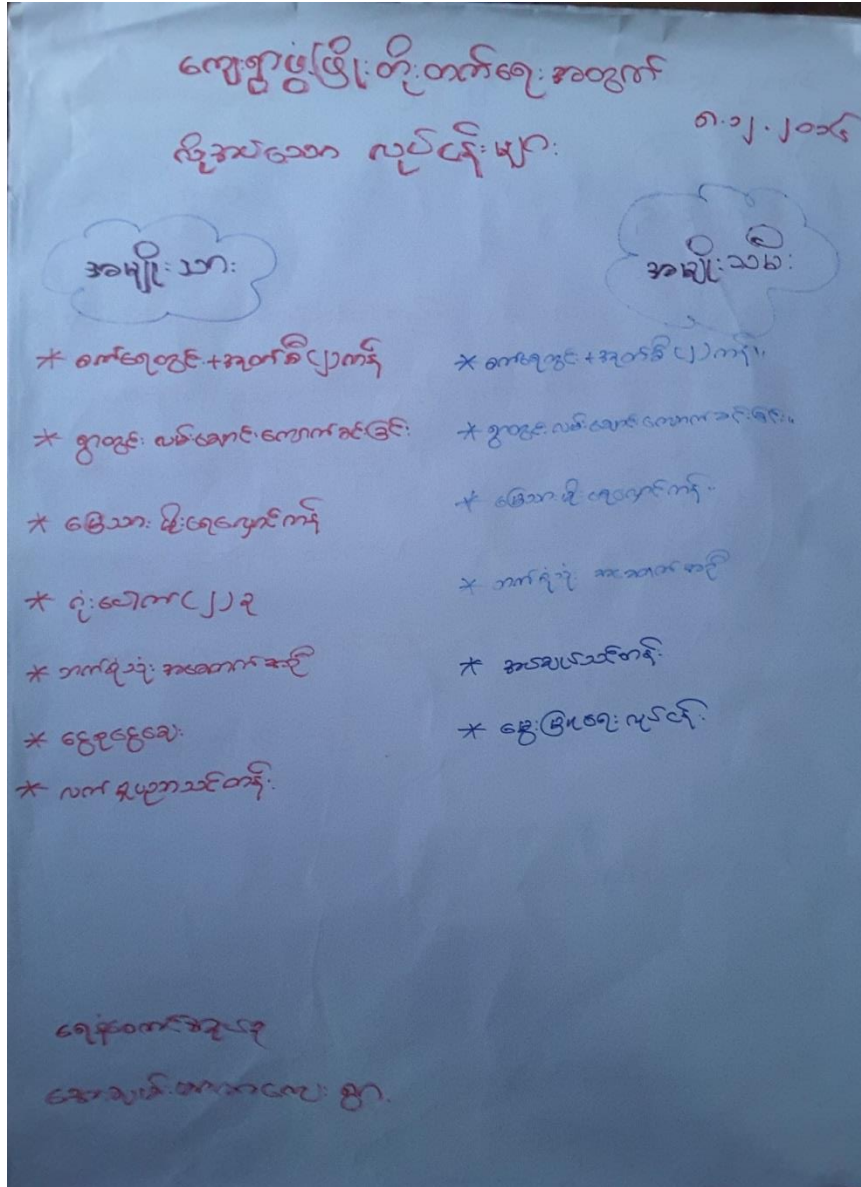 ကျေးရွာဖွံ့ဖြိုးတိုးတက်ရေးအတွက်
လိုအပ်သော လုပ်ငန်းများ
၈.၁၂.၂၀၁၄
အမျိုးသား
* စက်ရေတွင်း+အုတ်စီ(၂)ကန်
* ရွာတွင်းလမ်းချောင်းကျောက်ခင်းခြင်း
* မြေသားမိုးရေလှောင်ကန်
* ဂုံးပေါက်(၂)ခု
* ဘက်စုံသုံးအဆောက်အဦ
* ငွေစုငွေချေး
* လက်မှုပညာသင်တန်း
အမျိုးသမီး
* စက်ရေတွင်း+အုတ်စီ(၂)ကန်။
* ရွာတွင်းလမ်းချောင်းကျောက်ခင်းခြင်း။
* မြေသားမိုးရေလှောင်ကန်။
* ဘက်စုံသုံး အဆောက်အဦ
* အပ်ချုပ်သင်တန်း
* မွေးမြူရေးလုပ်ငန်း
ကျေးရွာ